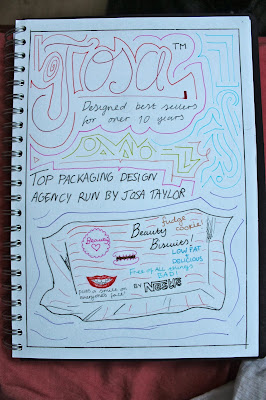 Josa™
Designed best sellers
for over 10 years
TOP PACKAGING DESIGN
AGENCY RUN BY JOSA TAYLOR
Beauty
Beauty
fudge
cookie!
Biscuits!
LOW FAT
&
DELICIOUS
Free of all things
BAD!
puts a smile on
everyone's face!
BY Nestle